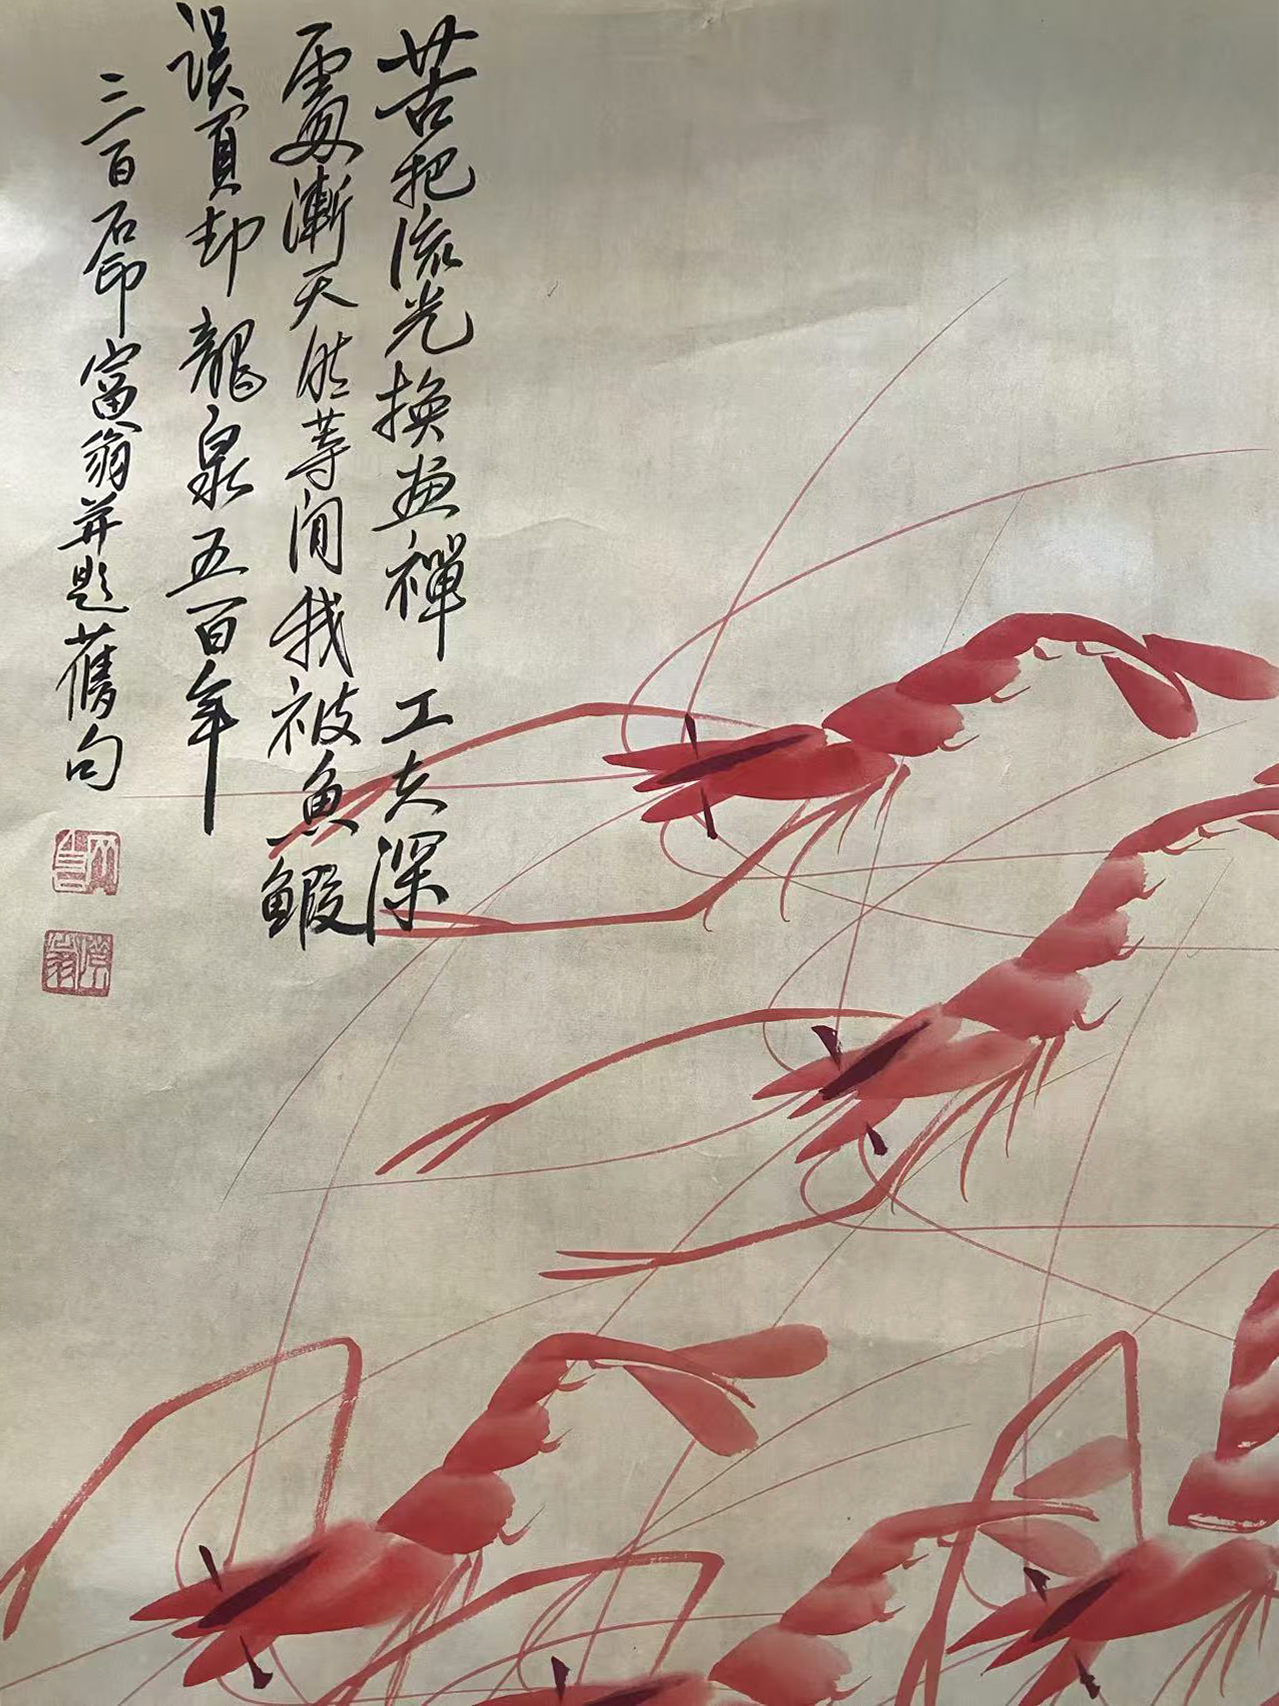 苦把流光換画禪工夫深
處漸天然等閒我被魚鰕
誤負却龍泉五百年
三百石印富翁并題舊句